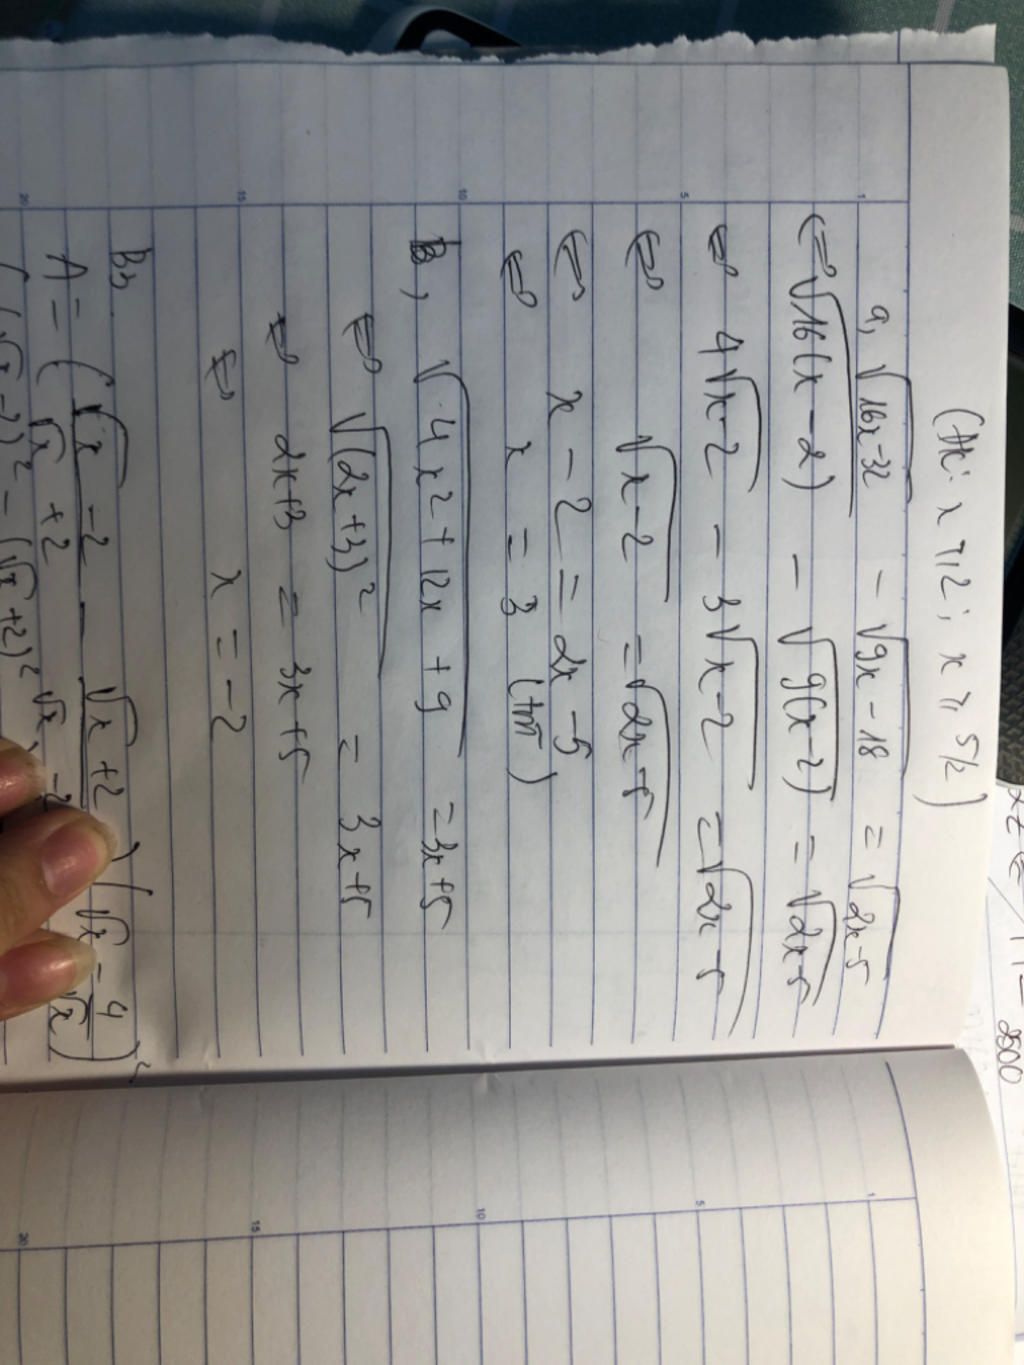 (ĐK: x ≥ 2; x ≥ 5/2)
a, √16x-32 - √9x-18 = √2x-5
(=) √16(x-2) - √9(x-2) = √2x-5
⇔ 4√x-2 - 3√x-2 = √2x-5
⇔ √x-2 = √2x-5
⇔ x-2 = 2x-5
⇔ x = 3 (tm)
B, √4x²+12x+9 = 3x+5
⇔ √(2x+3)² = 3x+5
⇔ 2x+3 = 3x+5
⇔ x = -2
B3
A = (√x-2/√x+2 - √x+2/) (√x - 4/√x)²
(√x-2)² - (√x+2)²
= 2500
1
5
10
15
20
1
5
10
15
20